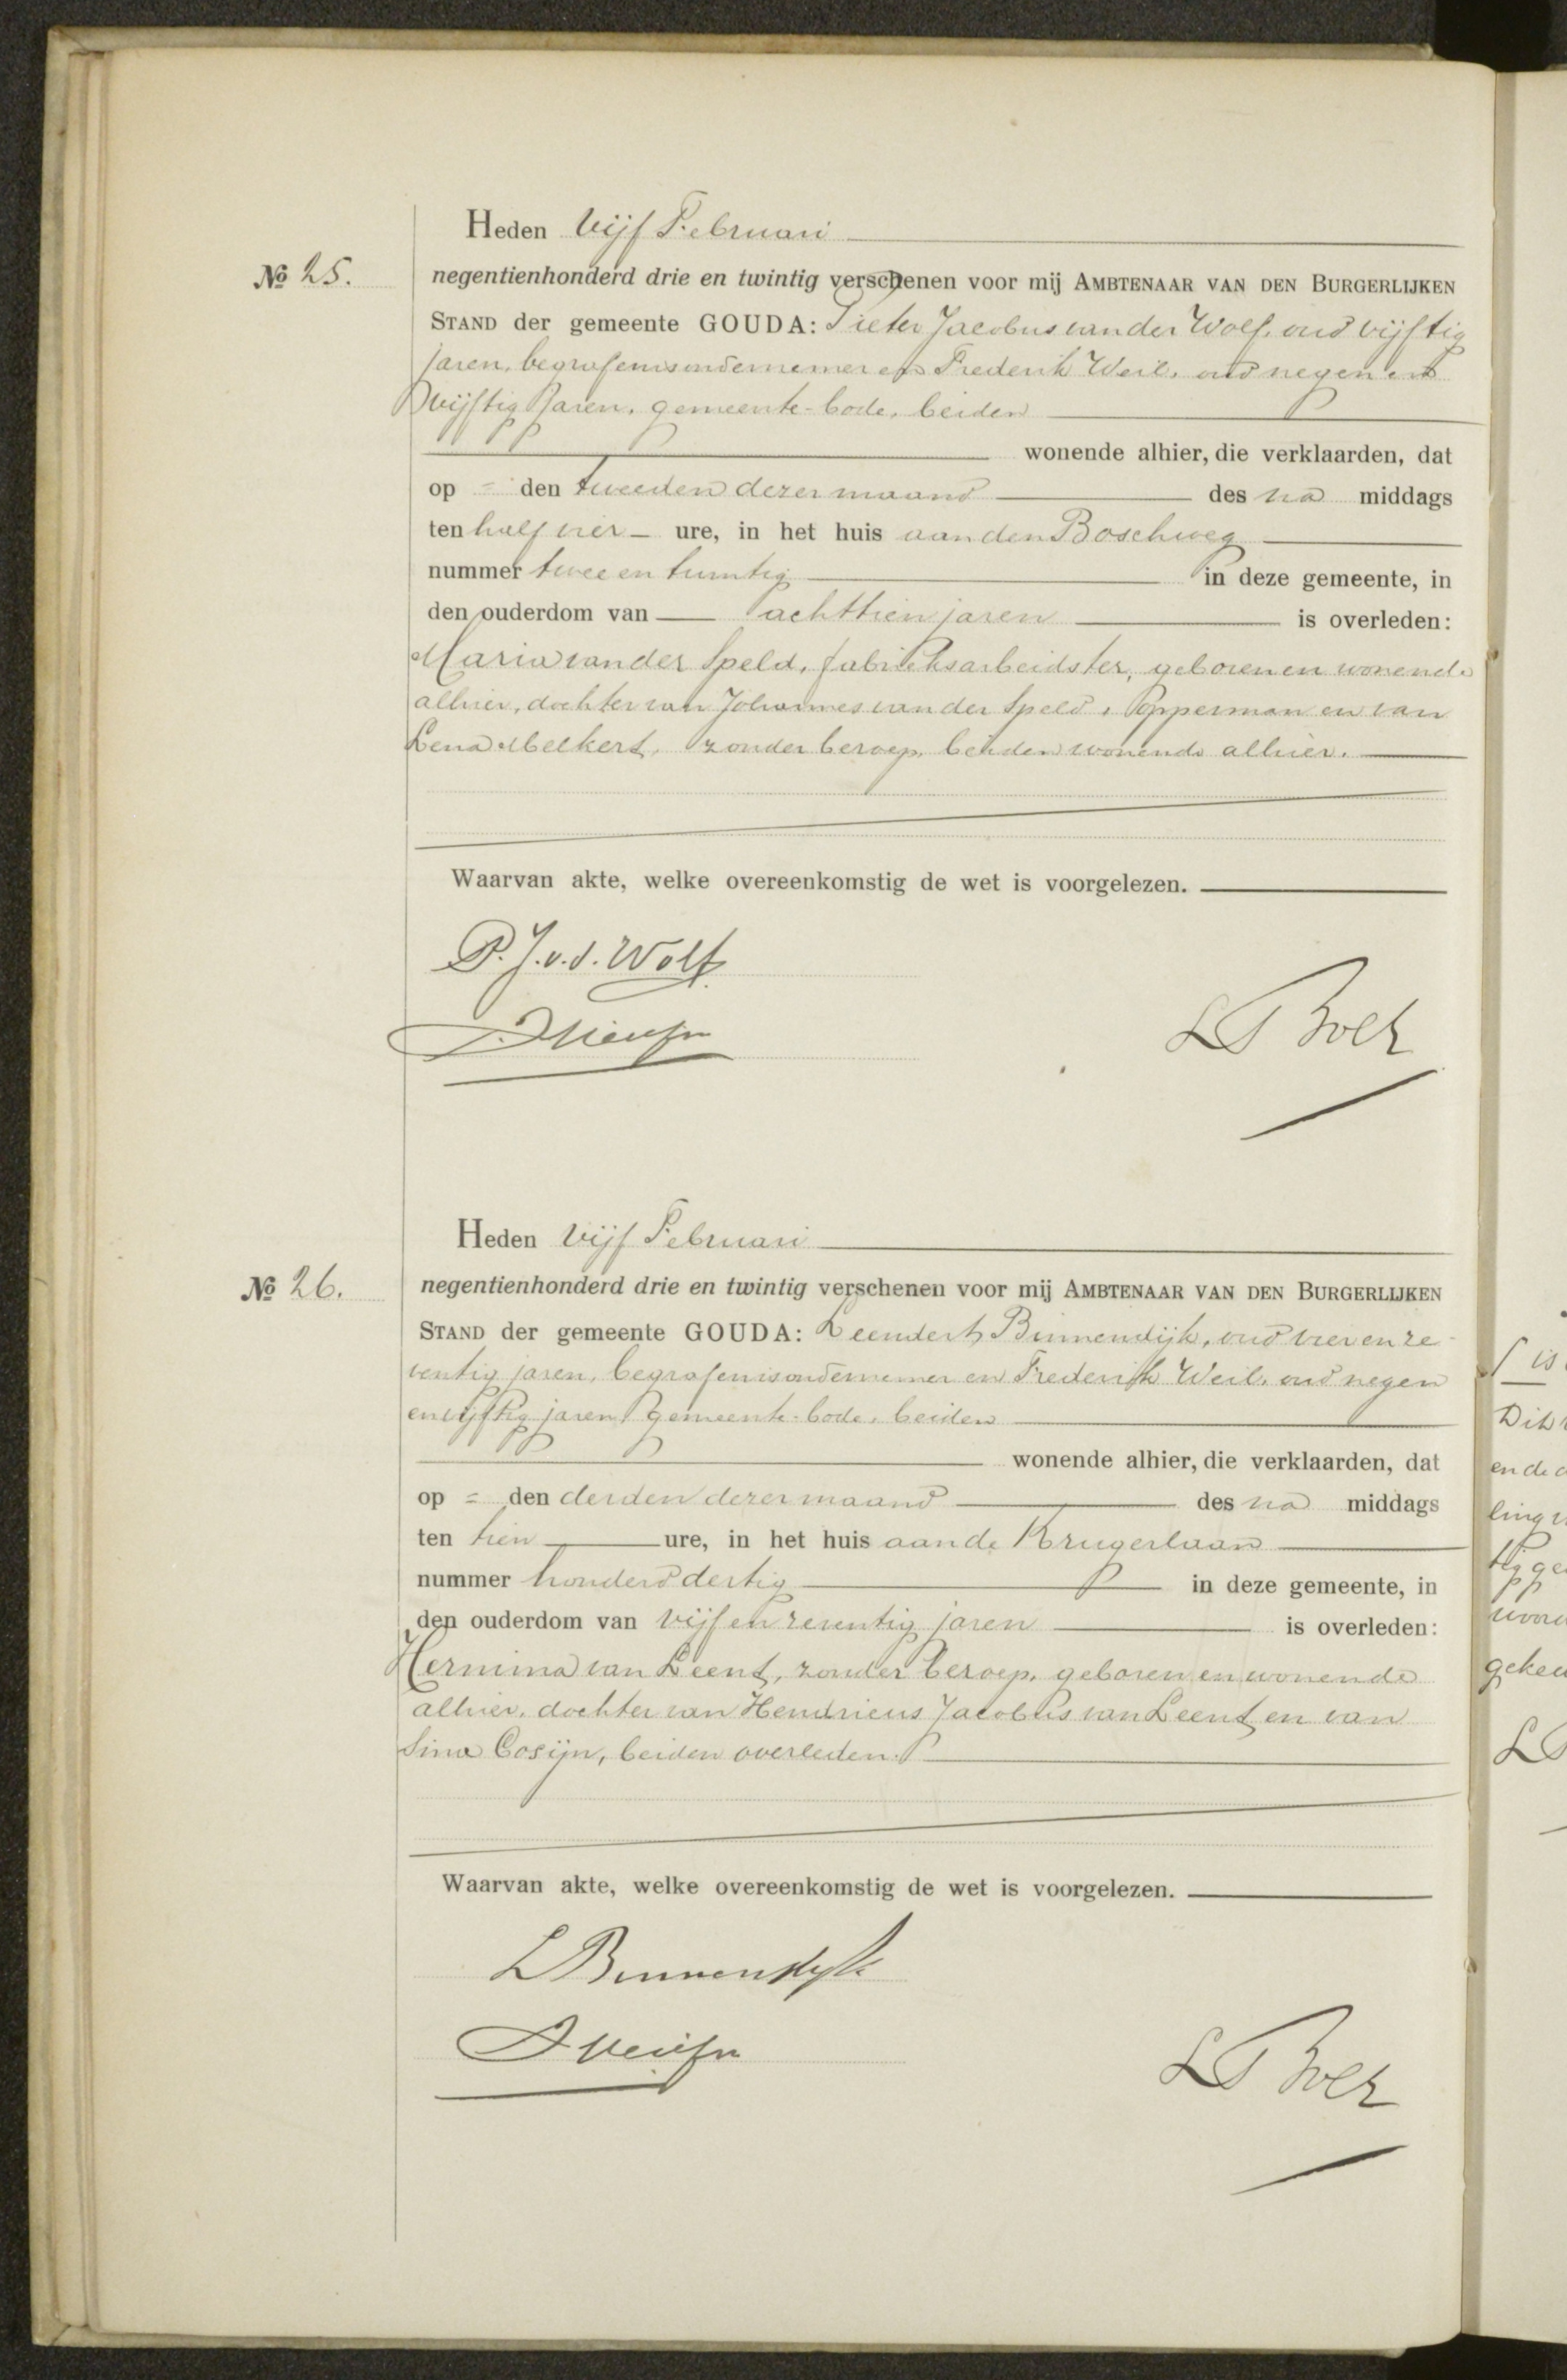 Heden vijf Februari
No 25. negentienhonderd drie en twintig verschenen voor mij AMBTENAAR VAN DEN BURGERLIJKEN
STAND der gemeente GOUDA: Pieter Jacobus van der Wolf, oud vijftig
jaren, begrafenisondernemer en Frederik Weil, oud negen en
vijftig jaren, gemeente-bode, beiden
wonende alhier, die verklaarden, dat
op = den tweeden dezer maand des na middags
ten half vier ure, in het huis aan den Boschweg
nummer twee en twintig in deze gemeente, in
den ouderdom van achttien jaren is overleden:
Maria van der Speld, fabrieksarbeidster, geboren en wonende
alhier, dochter van Johannes van der Speld, opperman en van
Lena Melkert, zonder beroep, beiden wonende alhier.
Waarvan akte, welke overeenkomstig de wet is voorgelezen.
P. J. v. d. Wolf
L Boer
Heden vijf Februari
No 26. negentienhonderd drie en twintig verschenen voor mij AMBTENAAR VAN DEN BURGERLIJKEN
STAND der gemeente GOUDA: Leendert Binnendijk, oud vier en ze
ventig jaren, begrafenisondernemer en Frederik Weil, oud negen
en vijftig jaren, gemeente-bode, beiden
wonende alhier, die verklaarden, dat
op = den derden dezer maand des na middags
ten tien ure, in het huis aan de Krugerlaan
nummer honderd dertig in deze gemeente, in
den ouderdom van vijf en zeventig jaren is overleden:
Hermina van Leent, zonder beroep, geboren en wonende
alhier, dochter van Hendricus Jacobus van Leent en van
Sina Cosijn, beiden overleden.
Waarvan akte, welke overeenkomstig de wet is voorgelezen.
L Binnendijk
L Boer